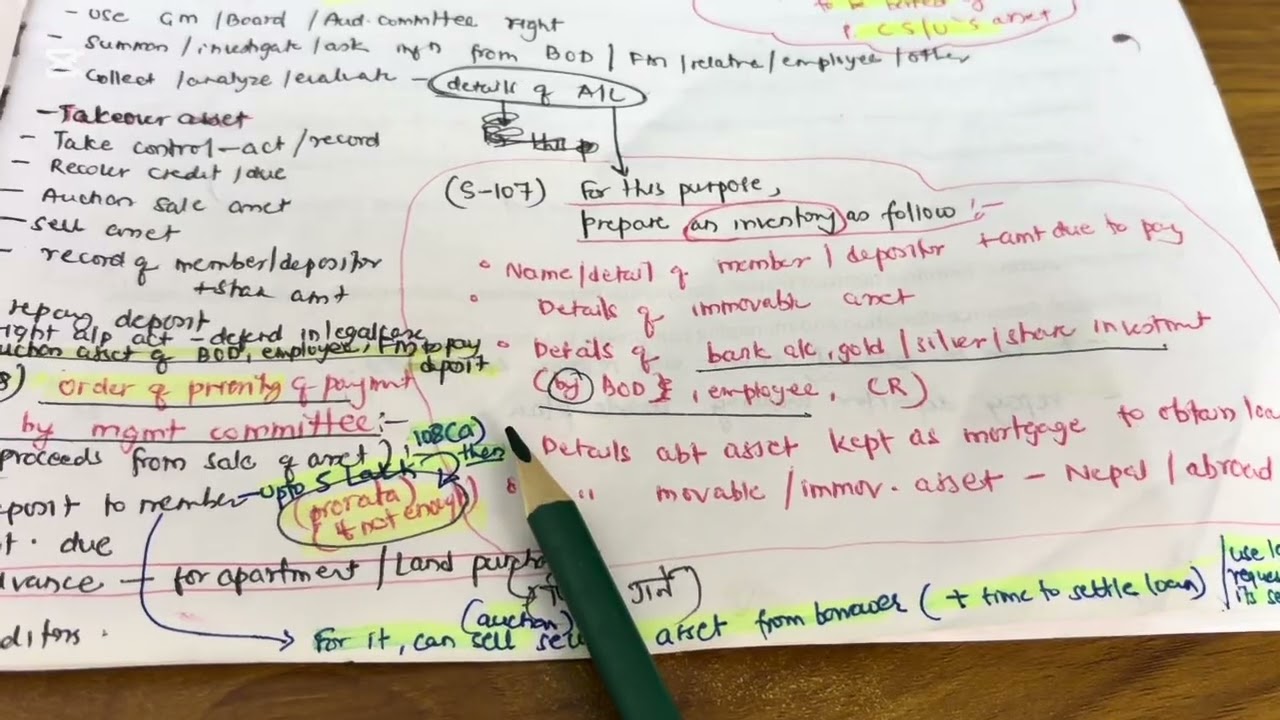 - Use GM / Board / Aud. committee right
- Summon / investigate / ask infn from BOD / FM / relative / employee / other
- Collect / analyze / evaluate - details of A/L
- Takeover asset
- Take control - act / record
- Recover credit / due
- Auction sale asset
- sell asset
- record of member / depositor
+ share amt
repay deposit
right alp act - defend in legal case
auction asset of BOD, employee, FM to pay
deposit
order of priority of paymt
by mgmt committee :-
proceeds from sale of asset)
108(a)
then
deposit to member - upto 5 lakh
(prorata)
if not enough
due
advance - for apartment / Land
ditors.
(auction)
For it, can sell asset from borrower (+ time to settle loan)
use
reque
its se
CS/U's asset
(S-107) For this purpose,
prepare an inventory as follow :-
• Name / detail of member / depositor + amt due to pay
• Details of immovable asset
• Details of bank a/c, gold / silver / share investmt
(by) BOD, employee, (R)
Details abt asset kept as mortgage to obtain loa
• " movable / immov. asset - Nepal / abroad